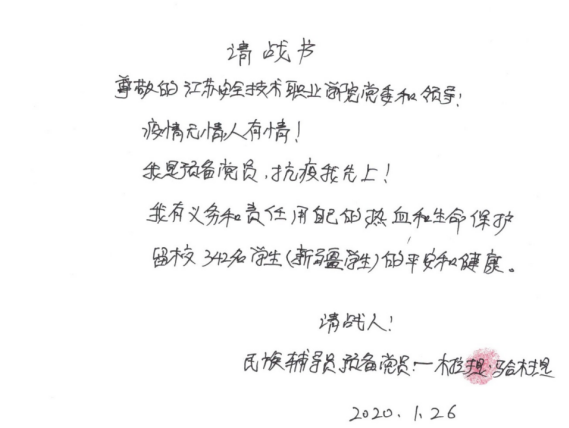 请战书
尊敬的江苏安全技术职业学院党委和领导！
疫情无情人有情！
我是预备党员，抗疫我先上！
我有义务和责任用自己的热血和生命保护
留校342名学生（新疆学生）的平安和健康。
请战人！
民族辅导员预备党员：一木拉提·马合木提
2020.1.26